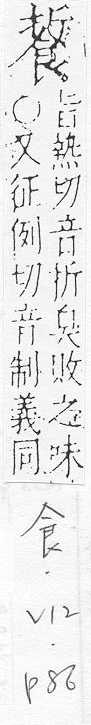 旨熱切音折臭敗之味
○又征例切音制義同
食.
V12
.
p86